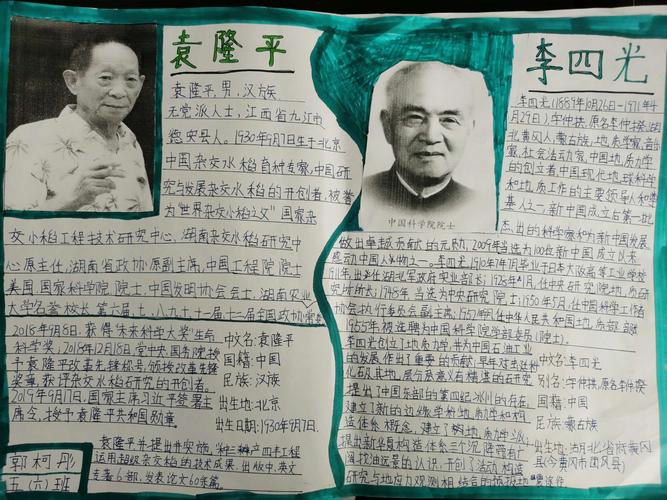 袁隆平
袁隆平,男,汉族
无党派人士,江西省九江市
德安县人。1930年9月7日生于北京
中国杂交水稻育种专家,中国研
究与发展杂交水稻的开创者,被誉
为"世界杂交水稻之父"国家杂
交水稻工程技术研究中心、湖南杂交水稻研究中
心原主任,湖南省政协原副主席,中国工程院院士
美国国家科学院院士,中国发明协会会士,湖南农业
大学名誉校长,第六届七、八九十十一届十二届全国政协常委
2018年9月8日,获得"未来科学大奖"生命
科学奖;2018年12月18日,党中央、国务院授
予袁隆平改革先锋称号,颁授改革先锋
奖章,获评杂交水稻研究的开创者。
2019年9月17日,国家主席习近平签署主
席令,授予袁隆平共和国勋章
中文名:袁隆平
国籍:中国
民族:汉族
出生地:北京
出生日期:1930年9月7日
袁隆平并提出并实施,"种三产四丰工程
运用超级杂交稻的技术成果,出版中、英文
专著6部,发表论文60余篇
郭柯彤
五(六)班
李四光
李四光(1889年10月26日-1971年4
月29日),字仲拱,原名李仲揆,湖
北黄冈人,蒙古族,地质学家、音
家、社会活动家,中国地质力学
的创立者、中国现代地球科学
和地质工作的主要领导人和奠
基人之一,新中国成立后第一批
杰出的科学家和为新中国发展
中国科学院院士
做出卓越贡献的元勋,2009年当选为100位新中国成立以来
感动中国人物之一。李四光1910年7月毕业于日本大阪高等工业学校
1911年,出任湖北军政府实业部长;1928年1月,任中央研究院地质研
究所所长;1948年当选为中央研究院院士;1950年5月,任中国科学工作者
协会执行委员会副主席;1952年,任中华人民共和国地质部部长
1955年被选聘为中国科学院学部委员(院士)。
李四光创立了地质力学,并为中国石油工业
的发展作出了重要的贡献,早年对蜓科
化石及其地层分层意义有精湛的研究
提出了中国东部的第四纪冰川的存在,
建立了新的边缘学科地质力学和构
造体系概念,建立了地质力学派;
提出新华夏构造体系三个沉降带有广
阔找油远景的认识,开创了活动构造
研究与地应力观测相结合的预报地震途径
中文名:李四光
别名:字仲拱,原名李仲揆
国籍:中国
民族:蒙古族
出生地:湖北省府黄冈
县(今黄冈市团风县)